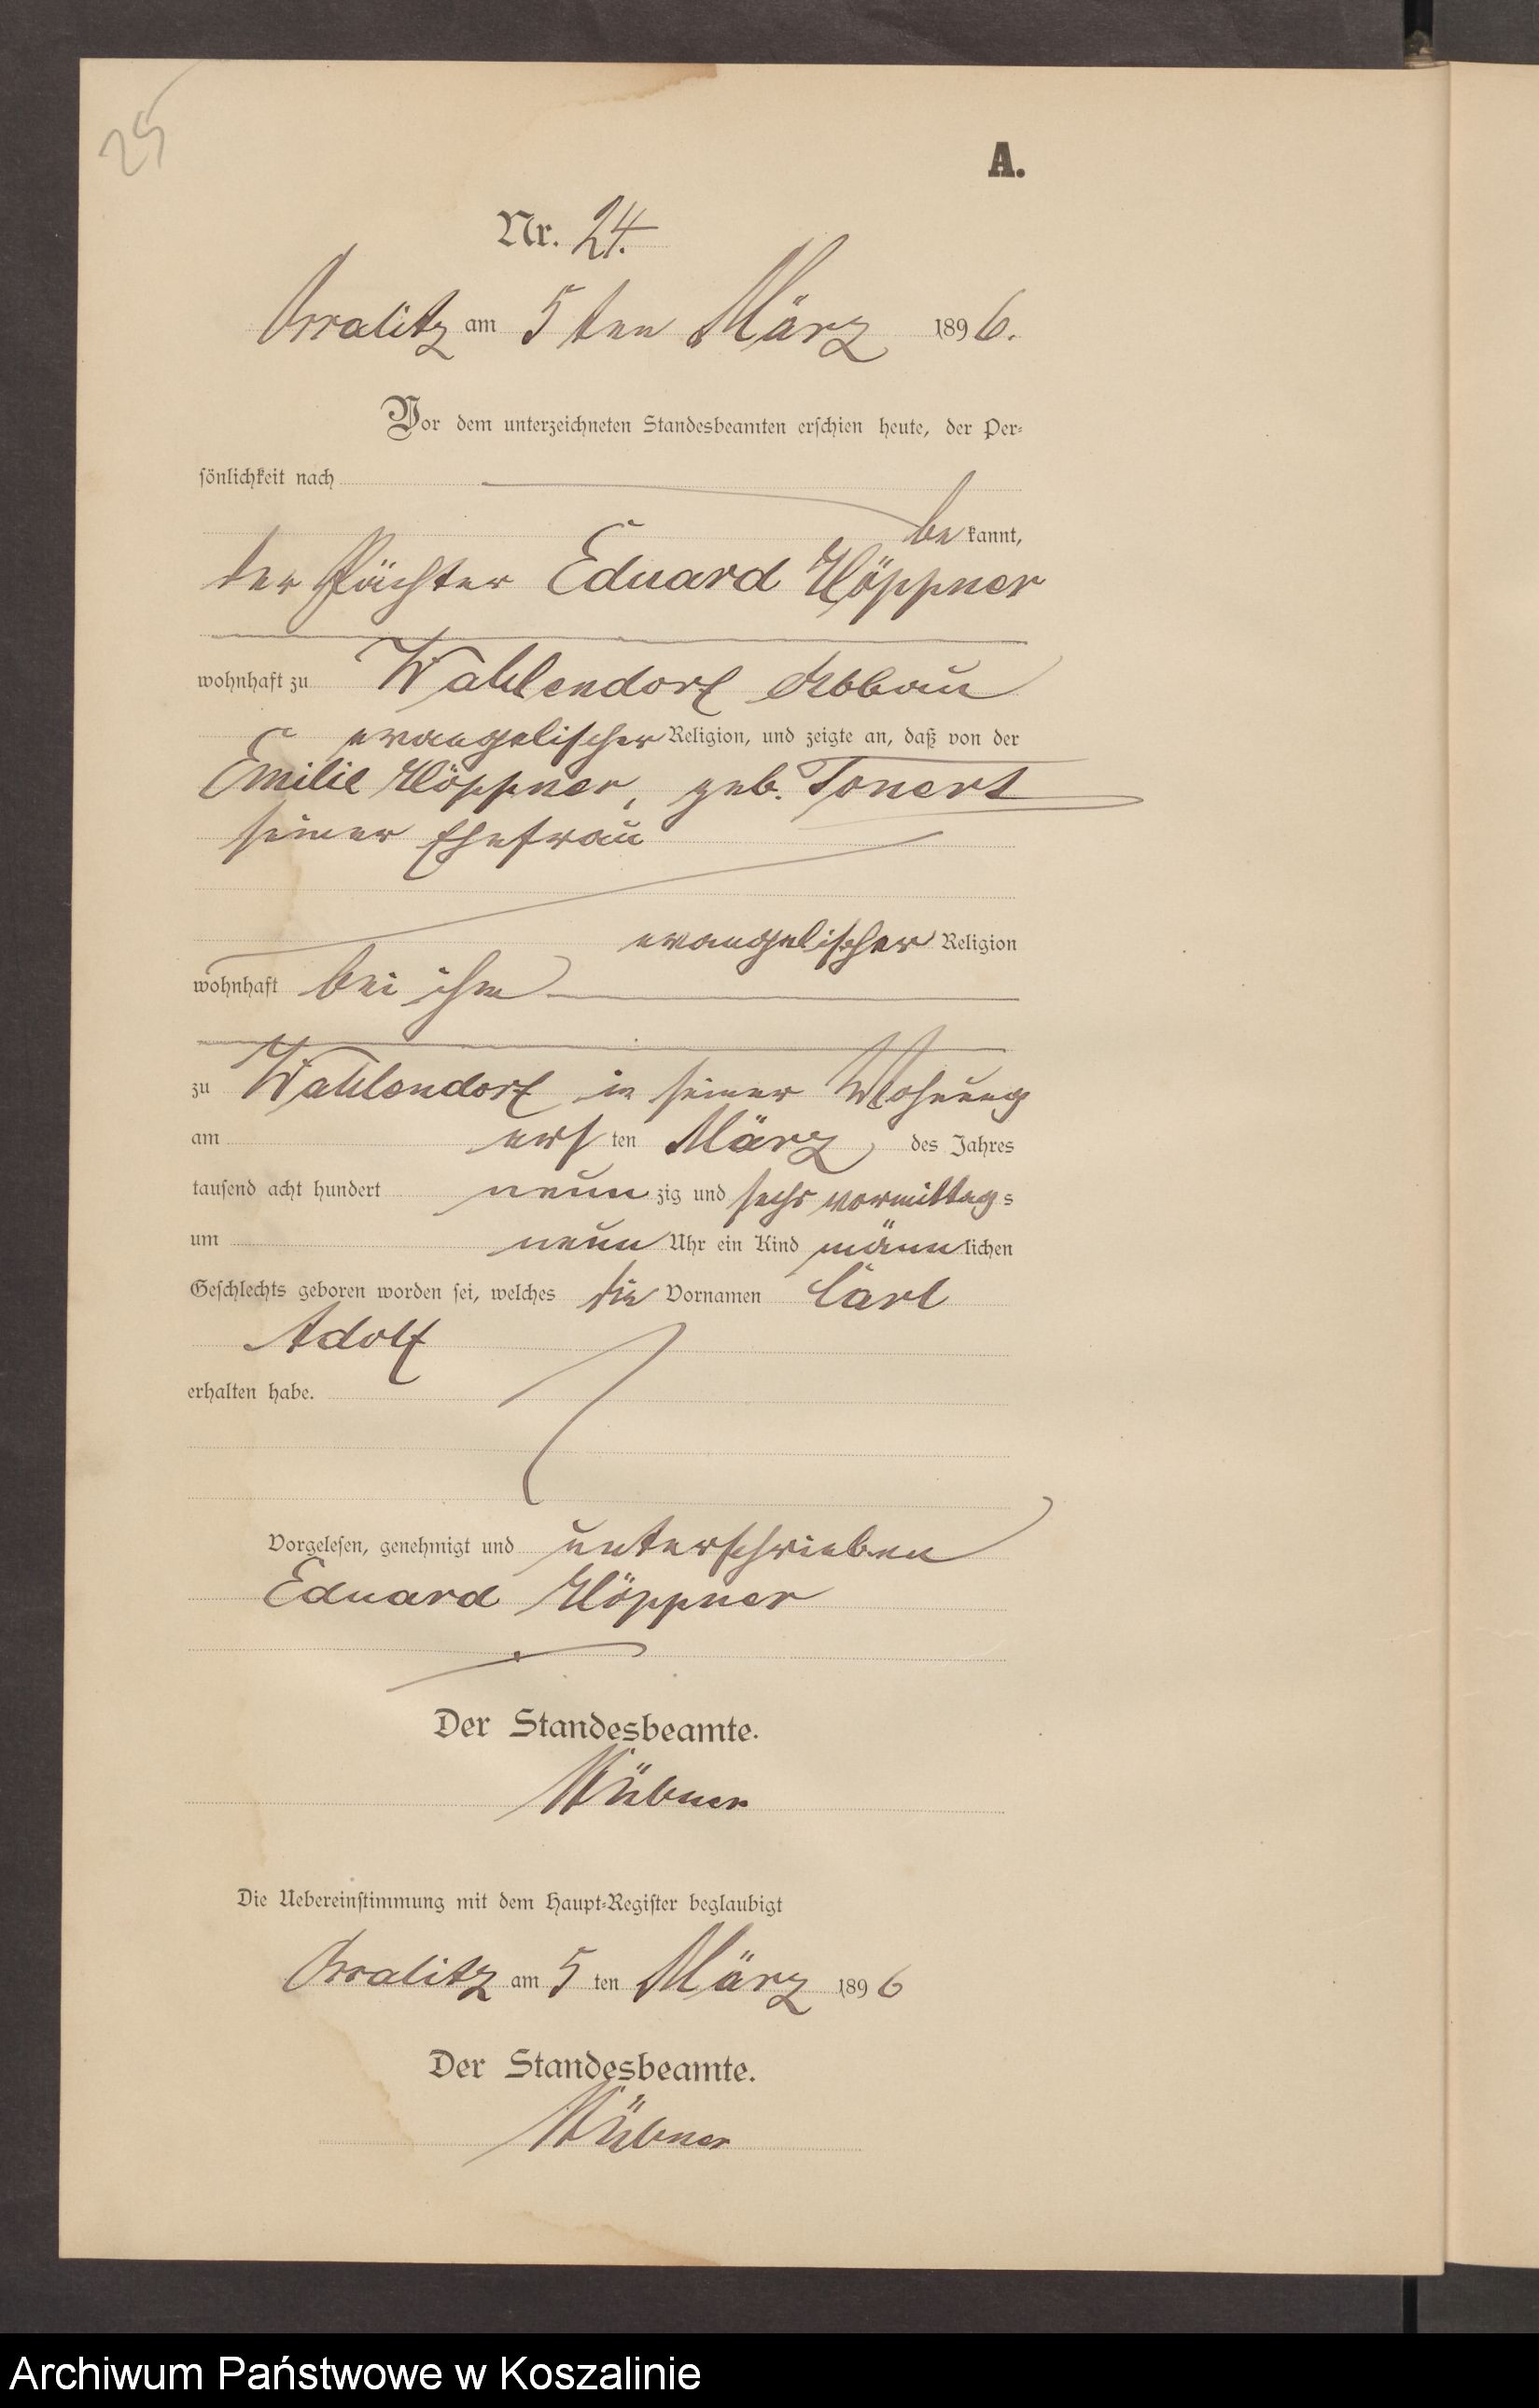 25
A.
Nr. 24.
am 5ten März 1896.
Vor dem unterzeichneten Standesbeamten erschien heute, der Per-
sönlichkeit nach
be kannt,
der Pächter Eduard Höppner
wohnhaft zu Wahlendorf Abbau
evangelischer Religion, und zeigte an, daß von der
Emilie Höppner, geb. Tonert
seiner Ehefrau
evangelischer Religion
wohnhaft bei ihm
zu Wahlendorf in seiner Wohnung
am ersten März des Jahres
tausend acht hundert neunzig und sechs vormittags
um neun Uhr ein Kind männlichen
Geschlechts geboren worden sei, welches die Vornamen Carl
Adolf
erhalten habe.
Vorgelesen, genehmigt und unterschrieben
Eduard Höppner
Der Standesbeamte.
Hübner
Die Uebereinstimmung mit dem Haupt-Register beglaubigt
am 5ten März 1896
Der Standesbeamte.
Hübner
Archiwum Państwowe w Koszalinie